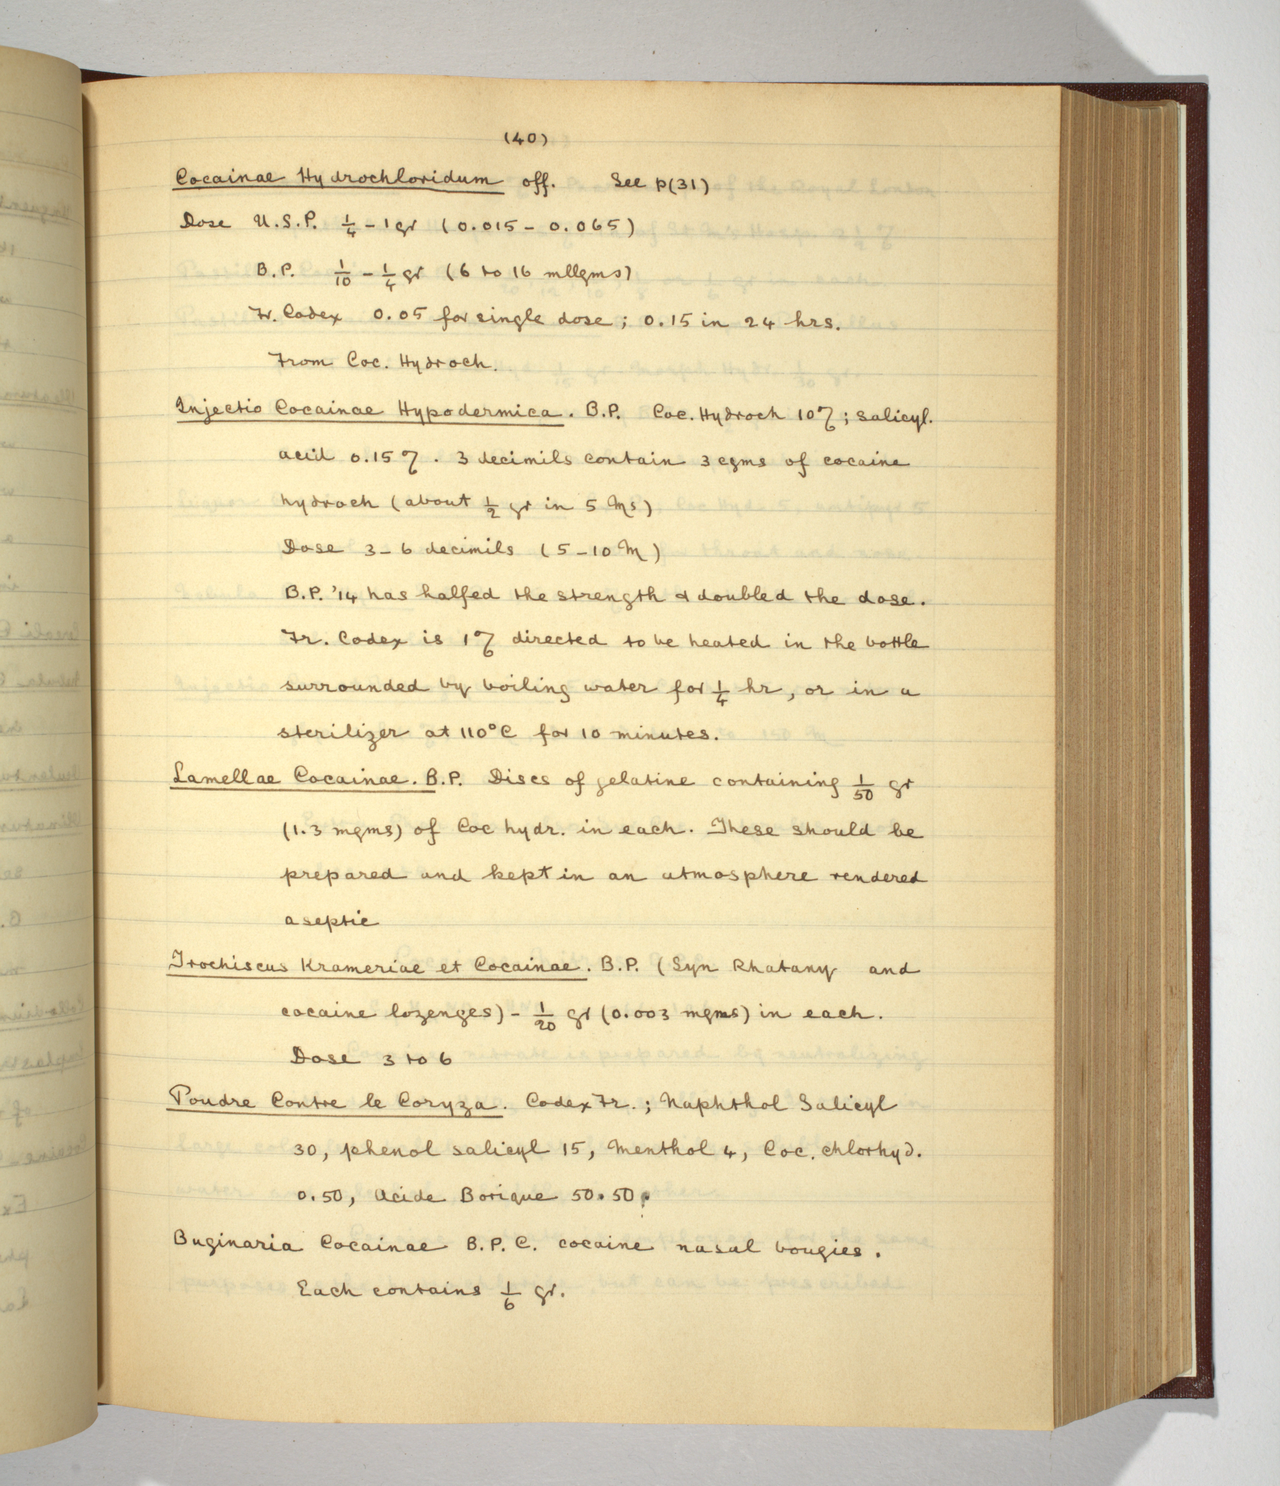 (40)
Cocainae Hydrochloridum off. See p(31)
Dose U.S.P. 1/4 - 1 gr (0.015 - 0.065)
B.P. 1/10 - 1/4 gr (6 to 16 mllgms)
Fr. Codex 0.05 for single dose; 0.15 in 24 hrs.
From Coc. Hydroch.
Injectio Cocainae Hypodermica. B.P. Coc. Hydroch 10%; salicyl.
acid 0.15%. 3 decimils contain 3 cgms of cocaine
hydroch (about 1/2 gr in 5 ♏s)
Dose 3-6 decimils (5-10 ♏)
B.P. '14 has halfed the strength & doubled the dose.
Fr. Codex is 1% directed to be heated in the bottle
surrounded by boiling water for 1/4 hr, or in a
sterilizer at 110°C for 10 minutes.
Lamellae Cocainae. B.P. Discs of gelatine containing 1/50 gr
(1.3 mgms) of Coc hydr. in each. These should be
prepared and kept in an atmosphere rendered
aseptic
Trochiscus Krameriae et Cocainae. B.P. (Syn Rhatany and
cocaine lozenges) - 1/20 gr (0.003 mgms) in each.
Dose 3 to 6
Poudre Contre le Coryza. Codex Fr.; Naphthol Salicyl
30, phenol salicyl 15, Menthol 4, Coc. chlorhyd.
0.50, Acide Borique 50.50.
Buginaria Cocainae B.P.C. cocaine nasal bougies.
Each contains 1/6 gr.